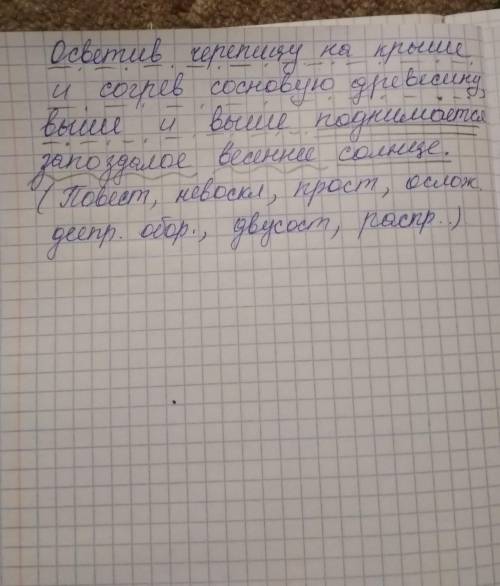 Осветив черепицу на крыше
и согрев сосновую древесину,
выше и выше поднимается
запоздалое весеннее солнце.
(Повест, невоскл, прост, ослож.
деепр. обор., двусост, распр..)